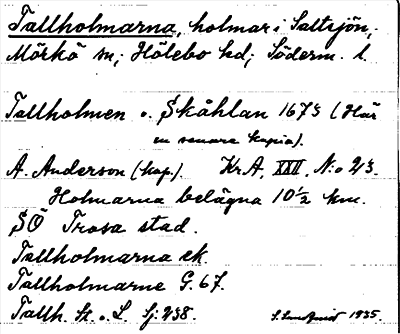 Tallholmarna, holmar i Saltsjön,
Mörkö sn; Hölebo hd; Söderm. l.
Tallholmen o. Skåhlan 1673 (Här
en senare kopia).
A. Anderson (kap.). Kr.A, XXII, N:o 23.
Holmarna belägna 10½ km.
SÖ Trosa stad.
Tallholmarna ek.
Tallholmarne G. 67.
Tallh. St. o. L. Sj: 238. 1935.